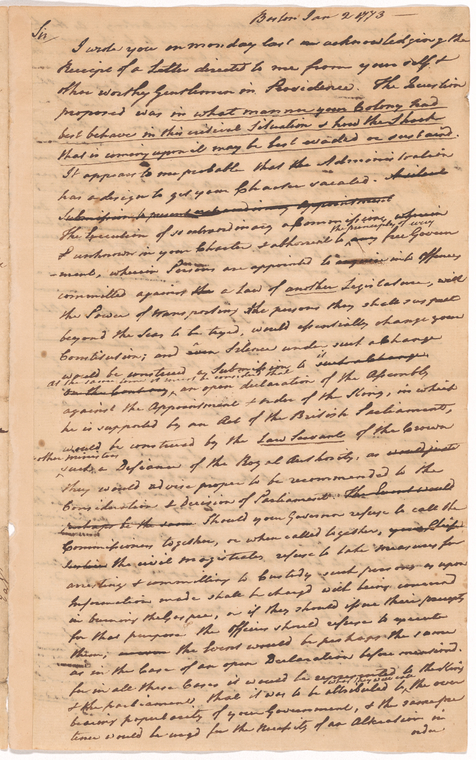 Boston Jan 2 1773 —
Sir
I wrote you on monday last an acknowledging the
Receipt of a Letter directed to me from your self &
other worthy Gentlemen in Providence. The Question
proposed was in what manner your Colony had
best behave in this critical Situation & how the Shock
that is coming upon it may be best evaded or sustaind.
It appears to me probable that the Administration
has a design to get your Charter vacated.
The Execution of so extraordinary a Commission,
the principles of every
& unknown in your Charter & abhorrent to any free Govern
-ment, wherein Persons are appointed to enquire into Offences
committed against a Law of another Legislature, with
the Power of transporting the persons they shall suspect
beyond the Seas to be tryed, would essentially change your
Constitution; and even Silence under such a change
would be construed a Submission to it such a change.
at the same time it must be considerd that
on the Contrary, an open declaration of the Assembly
against the Appointment & order of the King, in which
he is supported by an Act of the British Parliament,
would be construed by the Law Servants of the Crown
other ministers
such a Defiance of the Royal Authority, as would
they would advise proper to be recommended to the
Consideration & decision of Parliament. The Event would
perhaps be the same Should your Governor refuse to call the
Commissioners together, or when called together,
the civil magistrates refuse to take measures for
arresting & committing to Custody such persons as upon
Information made shall be chargd with being concernd
in burning the Gaspee, or if they should issue their precepts
for that purpose the officers should refuse to execute
them, the Event would be perhaps the same
as in the Case of an open Declaration before mentiond.
for in all these Cases it would be represented to the King
& the parliament, that it was to be attributed to the over
bearing popularity of your Government, & the same pre
tence would be urgd for the necessity of an Alteration in
order